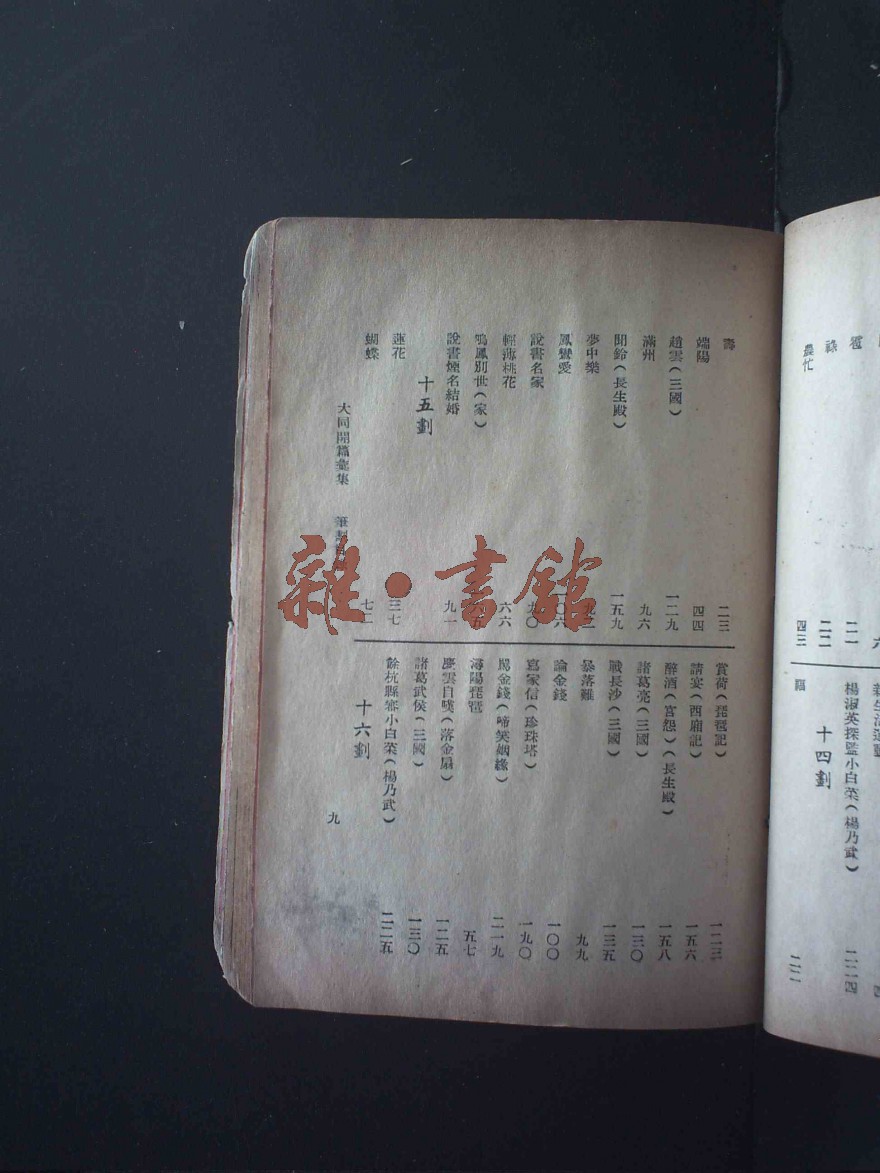 農忙
祿
四三
二二
二一
福
十四劃
楊淑英探監小白菜(楊乃武)
二二四
壽
二三
端陽
四四
趙雲(三國)
一二九
滿州
九六
聞鈴(長生殿)
一五九
夢中樂
鳳鸞愛
說書名家
輕薄桃花
六六
鳴鳳別世(家)
說書煙名結婚
九一
十五劃
蓮花
三七
蝴蝶
七二
賞荷(琵琶記)
一二三
請宴(西廂記)
一五六
醉酒(宮怨)(長生殿)
一五八
諸葛亮(三國)
一三〇
戰長沙(三國)
一三五
暴落難
九九
論金錢
一〇〇
寫家信(珍珠塔)
一九〇
賜金錢(啼笑姻緣)
二一九
潯陽琵琶
五七
慶雲自嘆(落金扇)
一二五
諸葛武侯(三國)
一三〇
餘杭縣審小白菜(楊乃武)
二二五
十六劃
大同開篇彙集
九
雜·書館